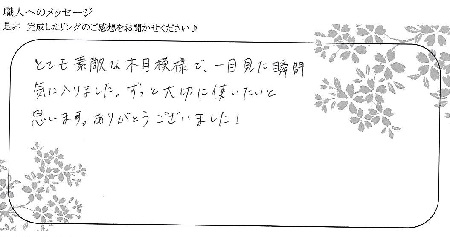 職人へのメッセージ
是非、完成したリングのご感想をお聞かせください♪
とても素敵な木目模様で、一目見た瞬間
気に入りました。ずっと大切に使いたいと
思います。ありがとうございました!